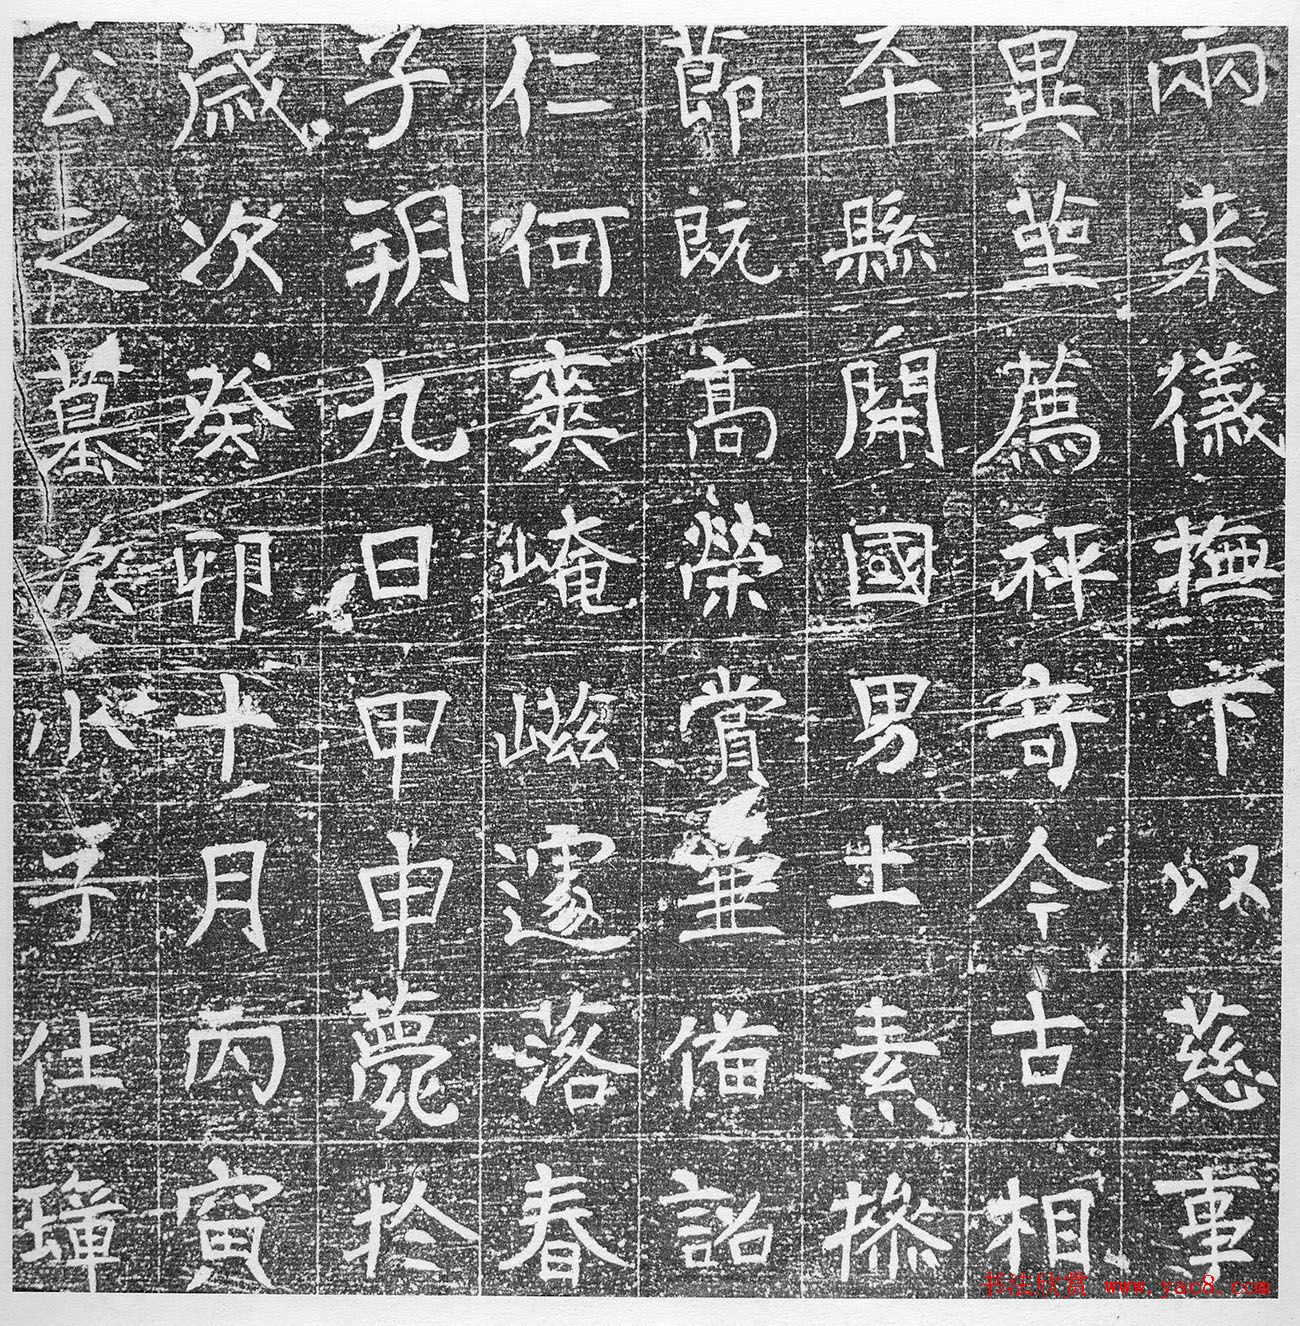 兩来儀撫下以慈事
異薦秤竒今古相
縣開國男土素摻
莭既高榮賞俻詔
仁何奭崦嵫遽落春
子朔九日甲申薨於
歲次癸卯十月丙寅
公之墓次小子仕璋
书法欣赏 www.yac8.com